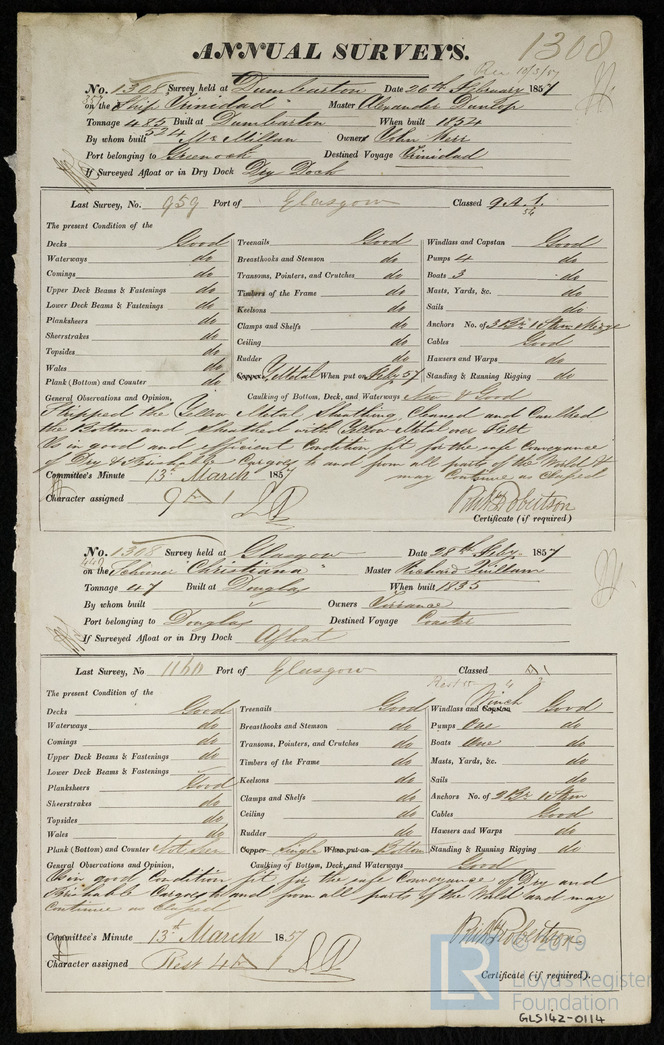 1308
ANNUAL SURVEYS.
Rec 10/3/57
No. 1308 Survey held at Dumbarton Date 26th February 1857
on the Ship "Trinidad" Master Alexander Dunlop
Tonnage 485 Built at Dumbarton When built 1854
524
By whom built McMillan Owners John Kerr
Port belonging to Greenock Destined Voyage Trinidad
If Surveyed Afloat or in Dry Dock Dry Dock
Last Survey, No. 959 Port of Glasgow Classed 9 A.1.
54
The present Condition of the
Decks Good Treenails Good Windlass and Capstan Good
Waterways do Breasthooks and Stemson do Pumps 4 do
Comings do Transoms, Pointers, and Crutches do Boats 3 do
Upper Deck Beams & Fastenings do Timbers of the Frame do Masts, Yards, &c. do
Lower Deck Beams & Fastenings do Keelsons do Sails do
Planksheers do Clamps and Shelfs do Anchors No. of 3 Br 1 Stm
Sheerstrakes do Ceiling do Cables Good
Topsides do Rudder do Hawsers and Warps do
Wales do Copper Y Metal When put on Feby 57 Standing & Running Rigging do
Plank (Bottom) and Counter do
General Observations and Opinion, Caulking of Bottom, Deck, and Waterways New & Good
Stripped the Yellow Metal Sheathing, Chaned and Caulked
the Bottom and Sheathed with Yellow Metal over Felt
Is in good and efficient Condition fit for the safe Conveyance
of Dry & Perishable Cargoes to and from all parts of the World &
may continue as Classed
Committee's Minute 13th March 1857
Character assigned 9 A 1
Robertson
Certificate (if required)
No. 1308 Survey held at Glasgow Date 28th Feby 1857
440
on the Schooner "Christiana" Master Richard Quillam
Tonnage 47 Built at Douglas When built 1835
By whom built Owners Torrance
Port belonging to Douglas Destined Voyage Coaster
If Surveyed Afloat or in Dry Dock Afloat
Last Survey, No 1160 Port of Glasgow Classed A 1
The present Condition of the
Decks Good Treenails Good Windlass and Capstan Winch Good
Waterways do Breasthooks and Stemson do Pumps One do
Comings do Transoms, Pointers, and Crutches do Boats One do
Upper Deck Beams & Fastenings do Timbers of the Frame do Masts, Yards, &c. do
Lower Deck Beams & Fastenings Keelsons do Sails do
Planksheers Good Clamps and Shelfs do Anchors No. of 2 Br 1 Stm
Sheerstrakes do Ceiling do Cables Good
Topsides do Rudder do Hawsers and Warps do
Wales do Copper Single When put on Bottom Standing & Running Rigging do
Plank (Bottom) and Counter Not seen
General Observations and Opinion, Caulking of Bottom, Deck, and Waterways Good
Is in good Condition fit for the safe Conveyance of Dry and
Perishable Cargoes to and from all parts of the World and may
continue as Classed
Committee's Minute 13th March 1857
Character assigned Rest 4 A 1
Robertson
Certificate (if required).
LR © 2019
Lloyd's Register
Foundation
GLS142-0114